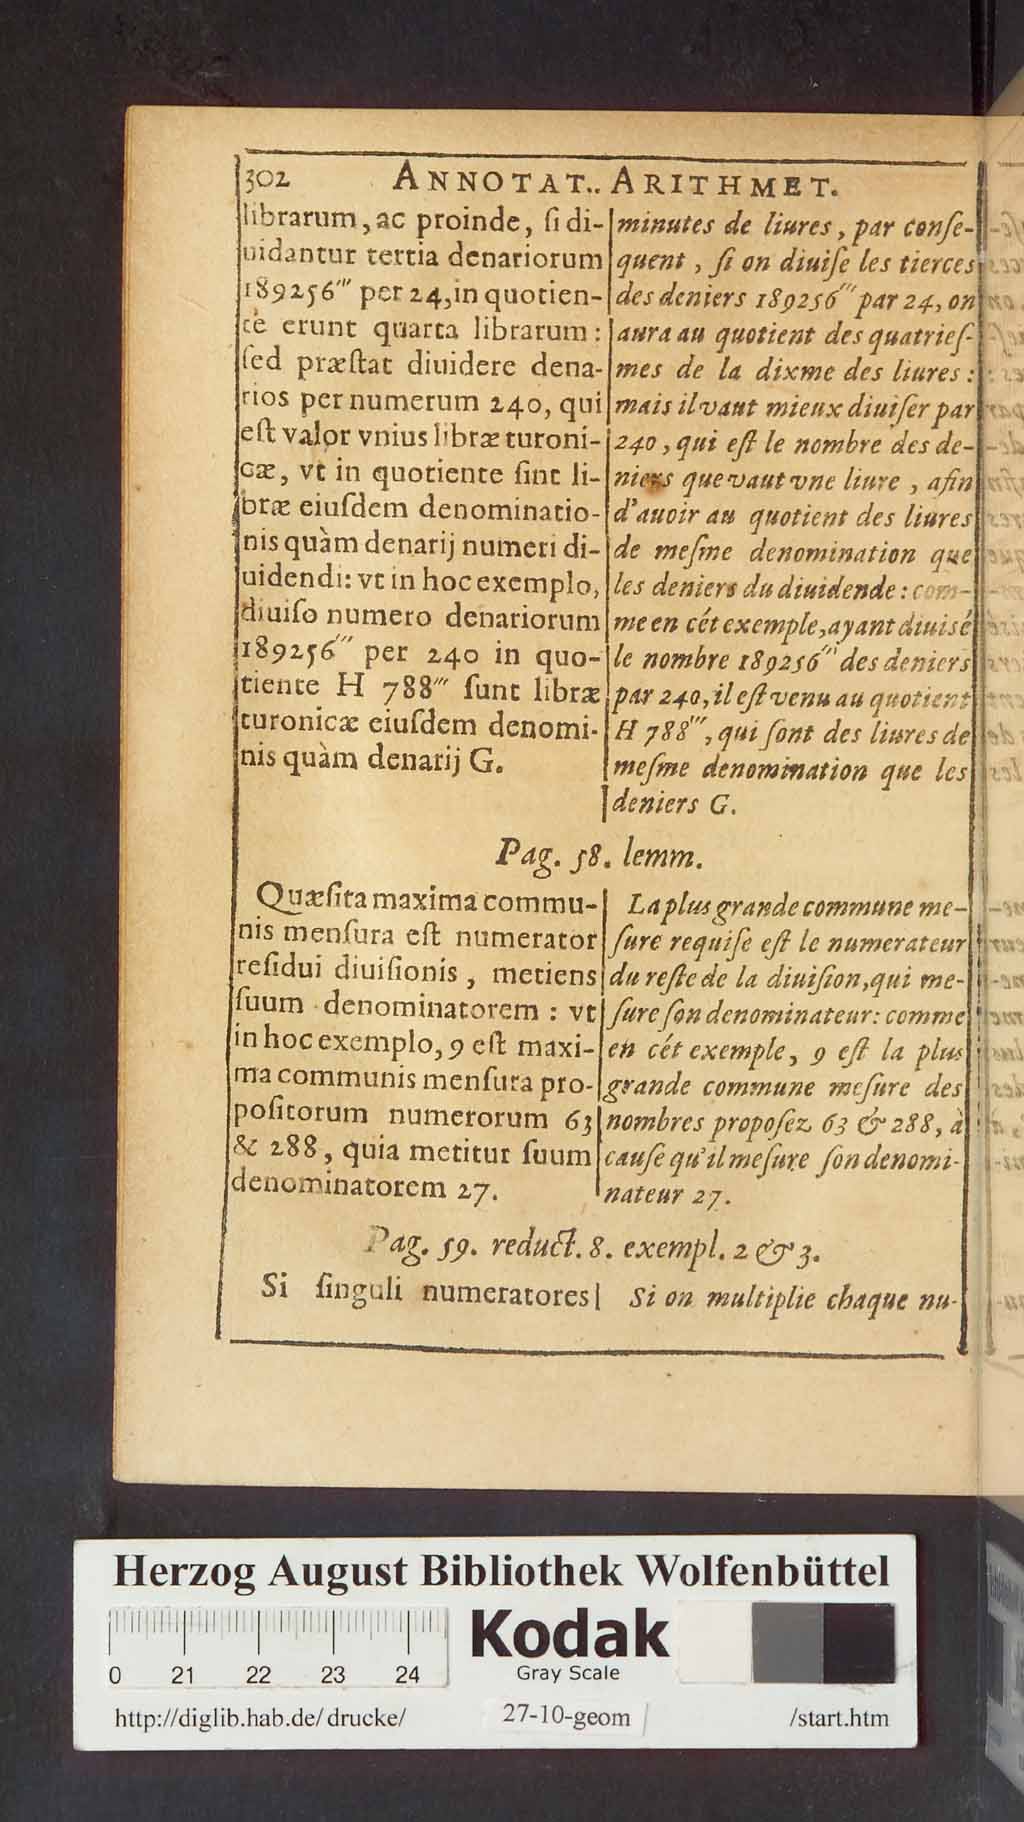 302 ANNOTAT.. ARITHMET.
librarum, ac proinde, ſi di-
uidantur tertia denariorum
189256''' per 24, in quotien-
te erunt quarta librarum:
ſed præſtat diuidere dena-
rios per numerum 240, qui
eſt valor vnius libræ turoni-
cæ, vt in quotiente ſint li-
bræ eiuſdem denominatio-
nis quàm denarij numeri di-
uidendi: vt in hoc exemplo,
diuiſo numero denariorum
189256''' per 240 in quo-
tiente H 788''' ſunt libræ
turonicæ eiuſdem denomi-
nis quàm denarij G.
minutes de liures, par conſe-
quent, ſi on diuiſe les tierces
des deniers 189256''' par 24, on
aura au quotient des quatrieſ-
mes de la dixme des liures:
mais il vaut mieux diuiſer par
240, qui eſt le nombre des de-
niers que vaut vne liure, afin
d'auoir au quotient des liures
de meſme denomination que
les deniers du diuidende: com-
me en cét exemple, ayant diuisé
le nombre 189256''' des deniers
par 240, il eſt venu au quotient
H 788''', qui ſont des liures de
meſme denomination que les
deniers G.
Pag. 58. lemm.
Quæſita maxima commu-
nis menſura eſt numerator
reſidui diuiſionis, metiens
ſuum denominatorem: vt
in hoc exemplo, 9 eſt maxi-
ma communis menſura pro-
poſitorum numerorum 63
& 288, quia metitur ſuum
denominatorem 27.
La plus grande commune me-
ſure requiſe eſt le numerateur
du reſte de la diuiſion, qui me-
ſure ſon denominateur: comme
en cét exemple, 9 eſt la plus
grande commune meſure des
nombres propoſez 63 & 288, à
cauſe qu'il meſure ſon denomi-
nateur 27.
Pag. 59. reduct. 8. exempl. 2 & 3.
Si ſinguli numeratores
Si on multiplie chaque nu-
Herzog August Bibliothek Wolfenbüttel
Kodak
Gray Scale
0 21 22 23 24
http://diglib.hab.de/drucke/ 27-10-geom /start.htm